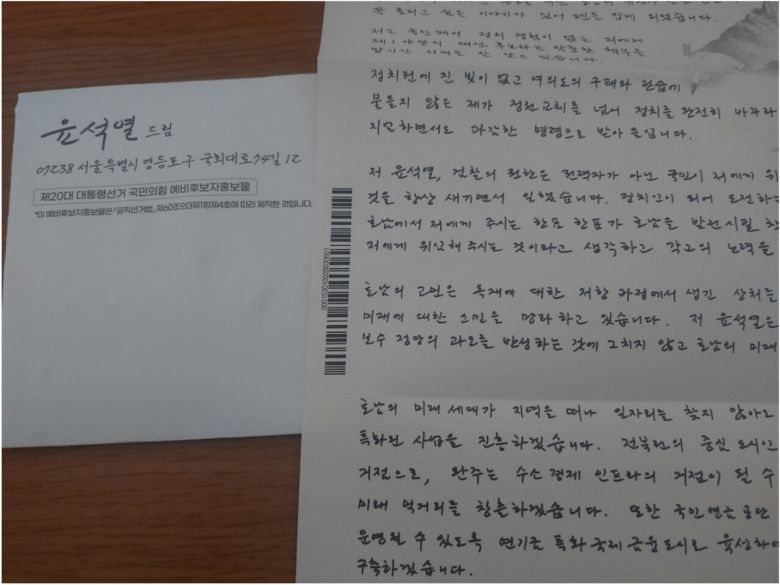 윤석열 드림
07238 서울특별시 영등포구 국회대로74길 12
제20대 대통령선거 국민의힘 예비후보자홍보물
*이 예비후보자홍보물은 「공직선거법」 제60조의3제1항제4호에 따라 제작한 것입니다.
0001630100
꼭 드리고 싶은 이야기가 있어 펜을 잡게 되었습니다.
저는 국민께서 정치 경험이 없는 저에게
제1야당의 대선 후보라는 막중한 책무를
맡기신 이유를 잘 알고 있습니다.
정치권에 진 빚이 없고 여의도의 구태와 관습에
물들지 않은 제가 정권교체를 넘어 정치를 완전히 바꾸라
지고하면서도 과감한 명령으로 받아들입니다.
저 윤석열, 검찰의 권한은 권력자가 아닌 국민이 저에게 위
것을 항상 새기면서 일했습니다. 정치인이 되어 도전하는
호남에서 저에게 주시는 한표 한표가 호남을 발전시킬
저에게 위임해 주시는 것이라고 생각하고 각고의 노력을
호남의 고민은 독재에 대한 저항 과정에서 생긴 상처를
미래에 대한 고민을 망라하고 있습니다. 저 윤석열은
보수 정당의 과오를 반성하는 것에 그치지 않고 호남의 미래
호남의 미래 세대가 지역을 떠나 일자리를 찾지 않아도
특화된 사업을 진흥하겠습니다. 전북권의 중심 도시인
거점으로, 완주는 수소 경제 인프라의 거점이 될 수
미래 먹거리를 창출하겠습니다. 또한 국민연금공단
운영될 수 있도록 연기금 특화 국제금융도시로 육성하여
구축하겠습니다.